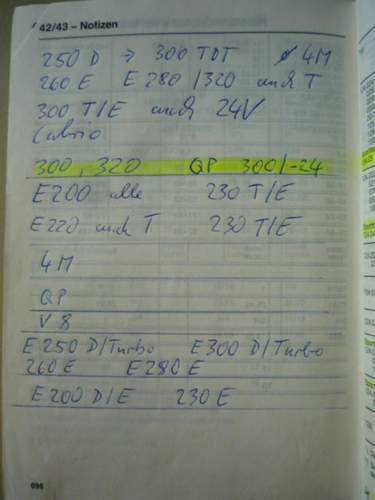 42/43 – Notizen
250 D → 300 TDT 4M
260 E E 280 / 320 auch T
300 T/E auch 24V
Cabrio
300, 320 QP 300/-24
E200 alle 230 T/E
E220 auch T 230 T/E
4M
QP
V 8
E 250 D/Turbo E 300 D/Turbo
260 E E 280 E
E 200 D/E 230 E
696